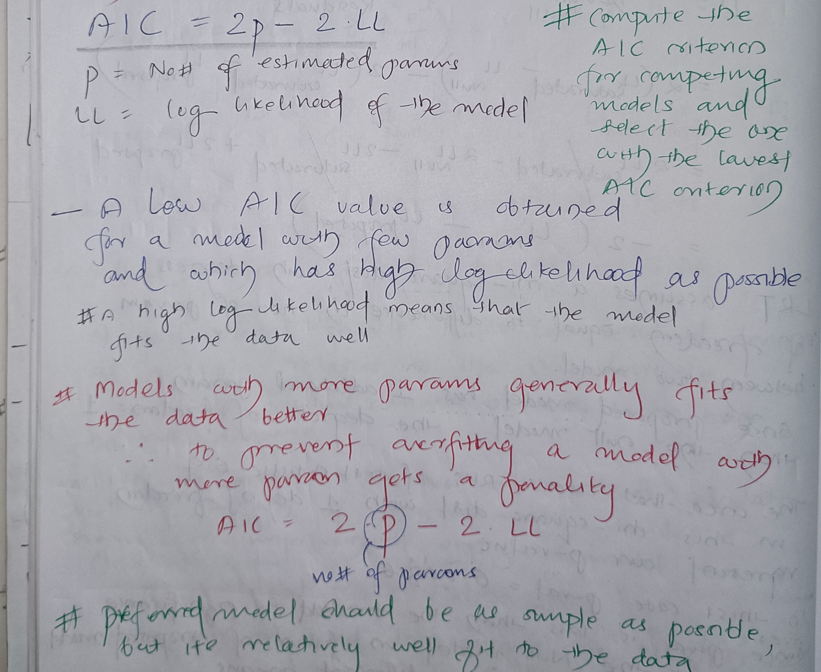 AIC = 2p - 2·LL
p = No# of estimated params
LL = log likelihood of the model
# compute the
AIC criterion
for competing
models and
select the one
with the lowest
AIC criterion
— A low AIC value is obtained
for a model with few params
and which has high log likelihood as possible
# A high log likelihood means that the model
fits the data well
# Models with more params generally fits
the data better
∴ to prevent overfitting a model with
more param gets a penality
AIC = 2 p - 2. LL
no# of params
# preferred model should be as simple as possible,
but its relatively well fit to the data